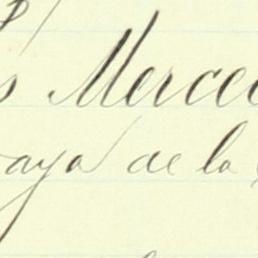 s Merce
aya de la